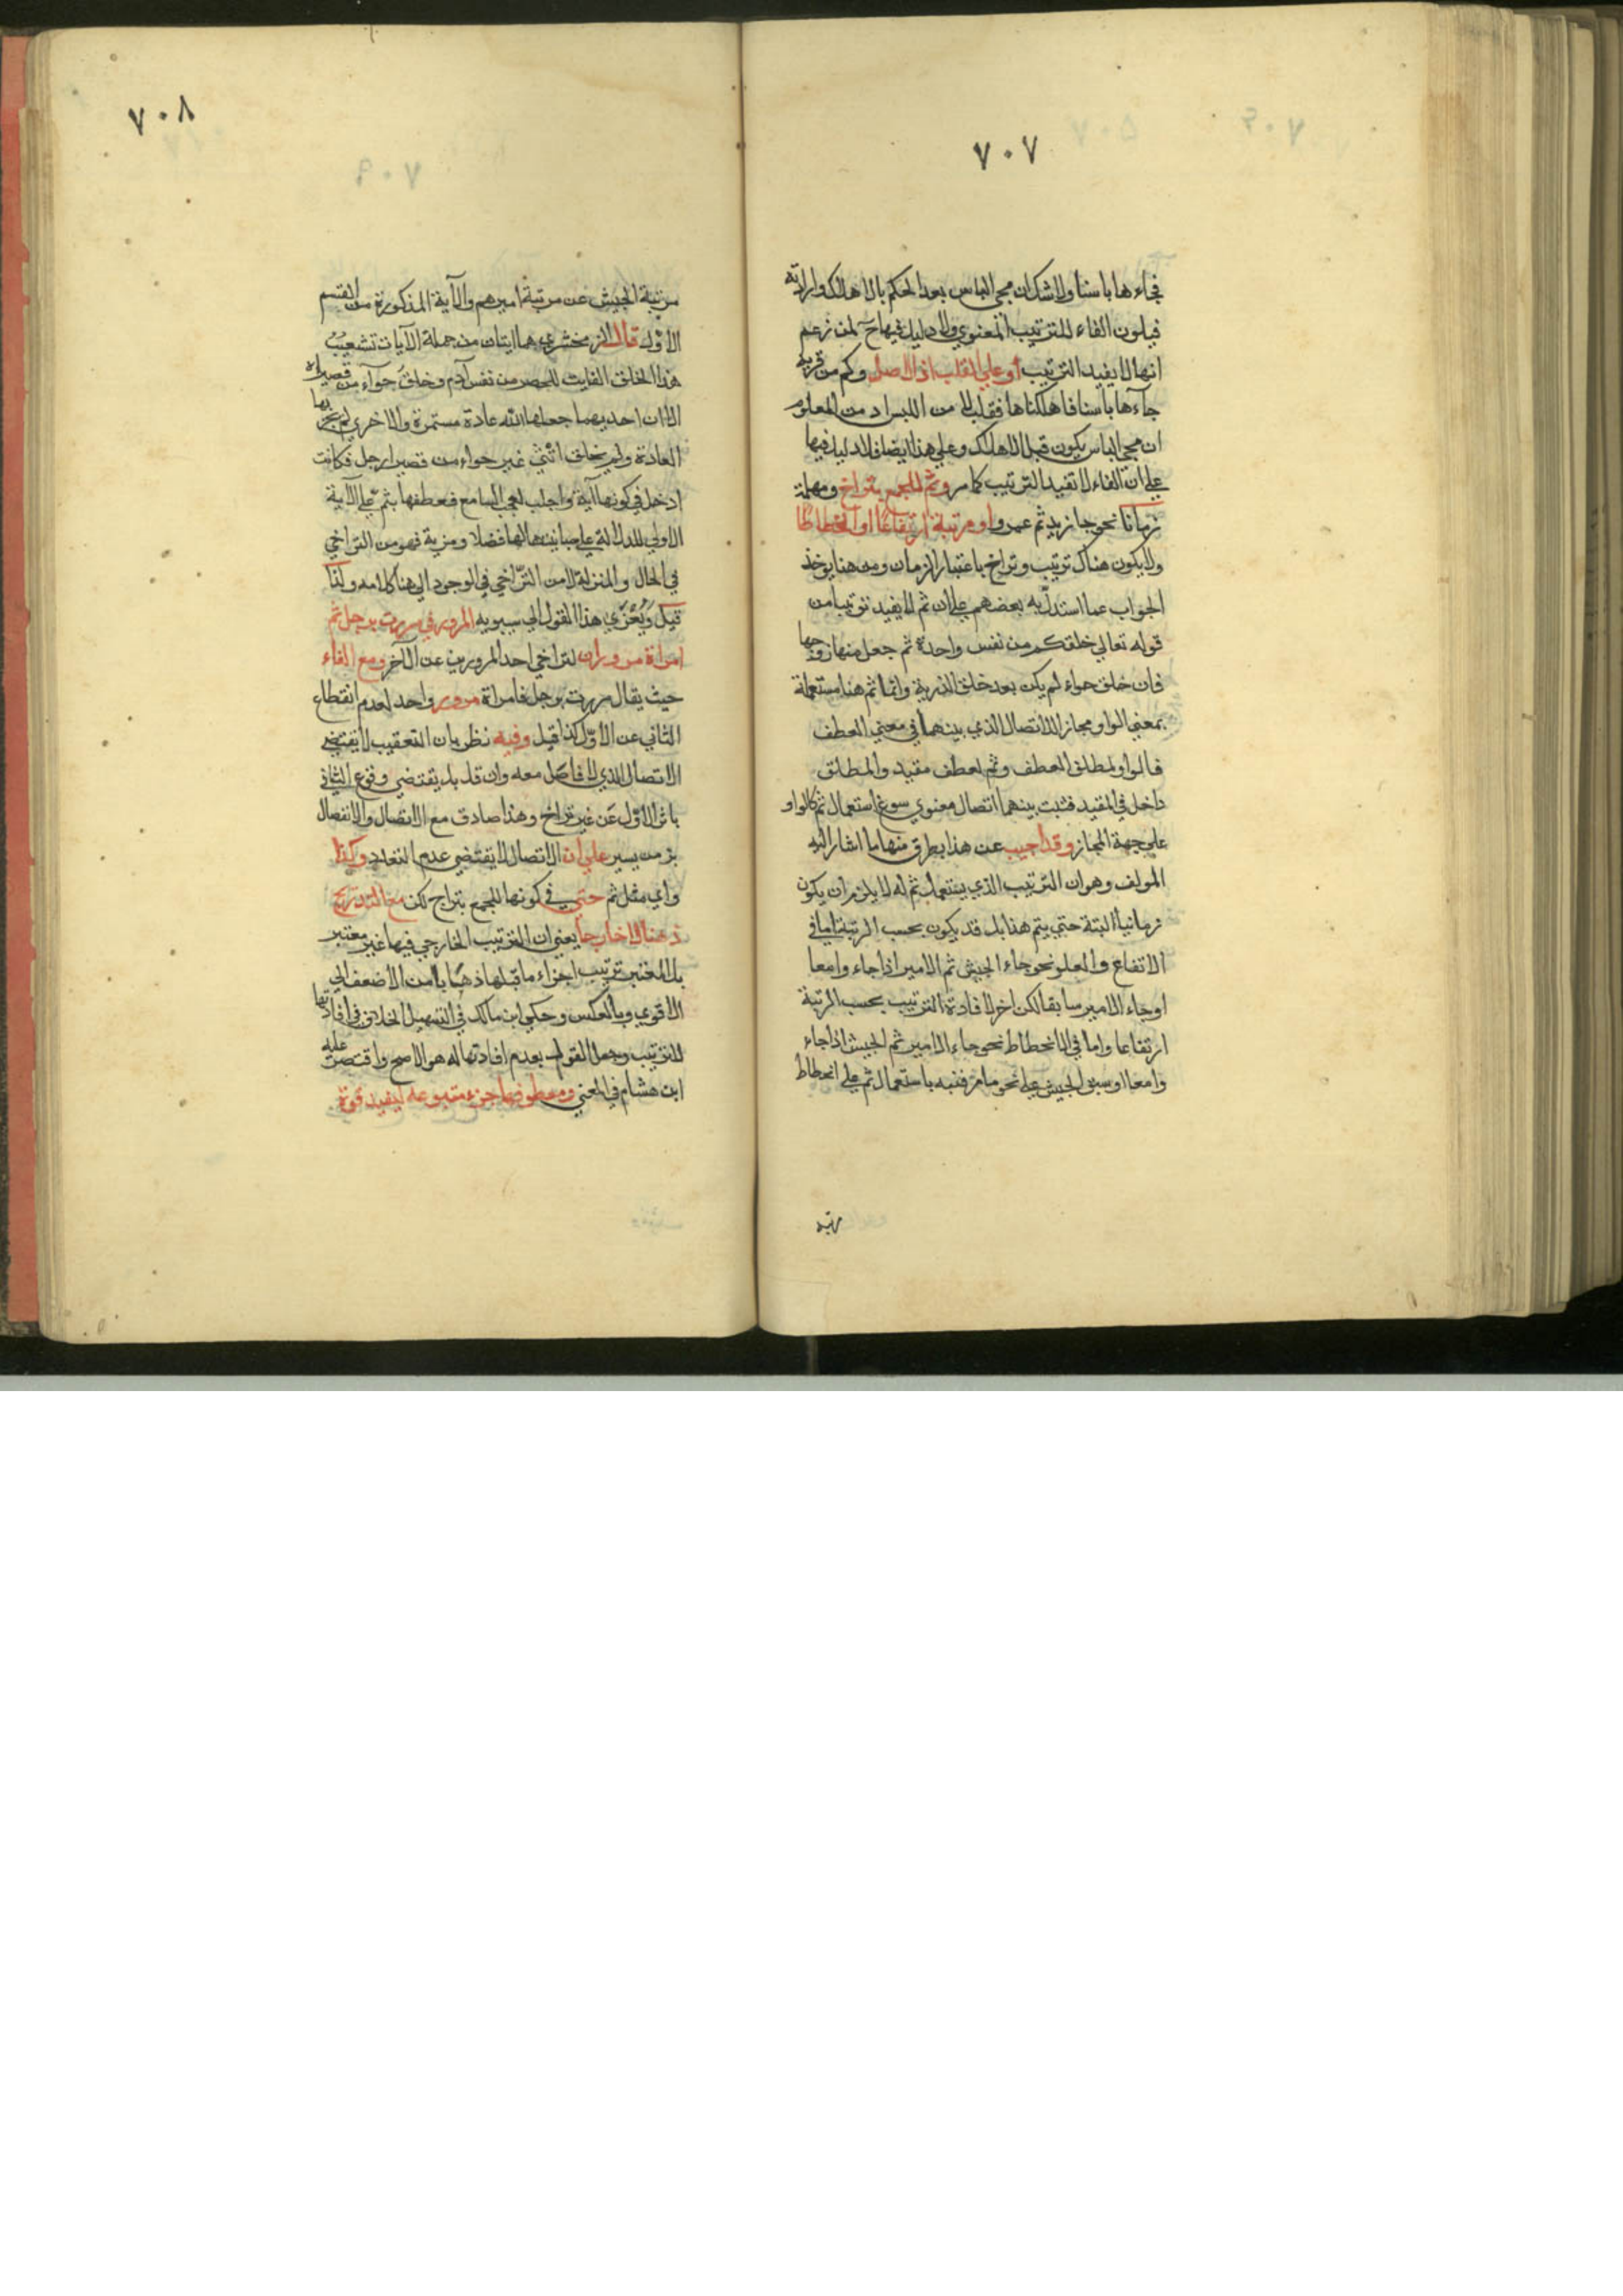 ٧٠٧
فجاءها باسنا ولا شك ان مجي الباس بعد الحكم بالاهلاك وارادته
فيكون الفاء للترتيب المعنوي ولا دليل فيها ح لمن زعم
انها لا يفيد الترتيب أو على القلب اذ الاصل وكم من قرية
جاءها باسنا فاهلكناها فقلب للامن اللبس اذ من المعلوم
ان مجي الباس يكون قبل الاهلاك وعلي هذا ايضا فلا دليل فيها
علي ان الفاء لا تفيد الترتيب كما مر وثم للجمع بتراخ ومهلة
زمانا نحو جا زيد ثم عمرو او مرتبة ارتفاعا او انحطاطا
ولا يكون هناك ترتيب وتراخ باعتبار الزمان ومن هنا يوخذ
الجواب عما استدل به بعضهم علي ان ثم لا يفيد ترتيبا من
قوله تعالي خلقكم من نفس واحدة ثم جعل منها زوجها
فان خلق حواء لم يكن بعد خلق الذرية وانما ثم هنا مستعملة
بمعني الواو مجازا للاتصال الذي بينهما في معني العطف
فالواو لمطلق العطف وثم لعطف مقيد والمطلق
داخل في المقيد فثبت بينهما اتصال معنوي سوغ استعمال ثم كالواو
علي جهة المجاز وقد اجيب عن هذا بطرق منها ما اشار اليه
المولف وهو ان الترتيب الذي يستعمل ثم له لا يلزم ان يكون
زمانيا البتة حتي يتم هذا بل قد يكون بحسب الرتبة اما في
الاتفاع والعلو نحو جاء الجيش ثم الامير اذا جاء وامعا
او جاء الامير سابقا لكن اخر لافادة الترتيب بحسب الرتبة
ارتفاعا واما في الانحطاط نحو جاء الامير ثم الجيش اذا جاء
وامعا او سبق الجيش علي نحو ما مر فنبه باستعمال ثم علي انحطاط
٧٠٨
مرتبة الجيش عن مرتبة اميرهم والآية المذكورة من القسم
الأول قال الزمخشري هما ايتان من جملة الآيات تشعيب
هذا الخلق الفايت للحصر من نفس آدم وخلق حواء من قصيراه
الا ان احديهما جعلها الله عادة مستمرة والاخري لم تجر بها
العادة ولم يخلق انثي غير حواء من قصيرا رجل فكانت
ادخل في كونها آية واجلب لعجب السامع فعطفها بثم علي الآية
الاولي للدلالة علي مباينتها لها فضلا ومزية فهو من التراخي
في الحال والمنزلة لا من التراخي في الوجود الي هنا كلامه ولذا
قيل ويعزي هذا القول الي سيبويه المرور في مررت برجل ثم
امراة مروران لتراخي احد المرورين عن الآخر ومع الفاء
حيث يقال مررت برجل فامراة مرور واحد لعدم انقطاع
الثاني عن الأول كذا قيل وفيه نظر بان التعقيب لا يقتضي
الاتصال الذي لا فاصل معه وان قل بل يقتضي وقوع الثاني
باثر الأول عن غير تراخ وهذا صادق مع الاتصال والانفصال
بزمن يسير علي ان الاتصال لا يقتضي عدم التعدد وكذا
واي مثل ثم حتي في كونها للجمع بتراخ لكن مع التدريج
ذهنا لا خارجا يعني ان الترتيب الخارجي فيها غير معتبر
بل المعتبر ترتيب اجزاء ما قبلها ذهنا بامن الأضعف الي
الاقوي وبالعكس وحكي ابن مالك في التسهيل الخلاف في افادتها
للترتيب وجعل القول بعدم افادتها له هو الاصح واقتصر عليه
ابن هشام في المغني ومعطوفها جزء متبوعه ليفيد قوة